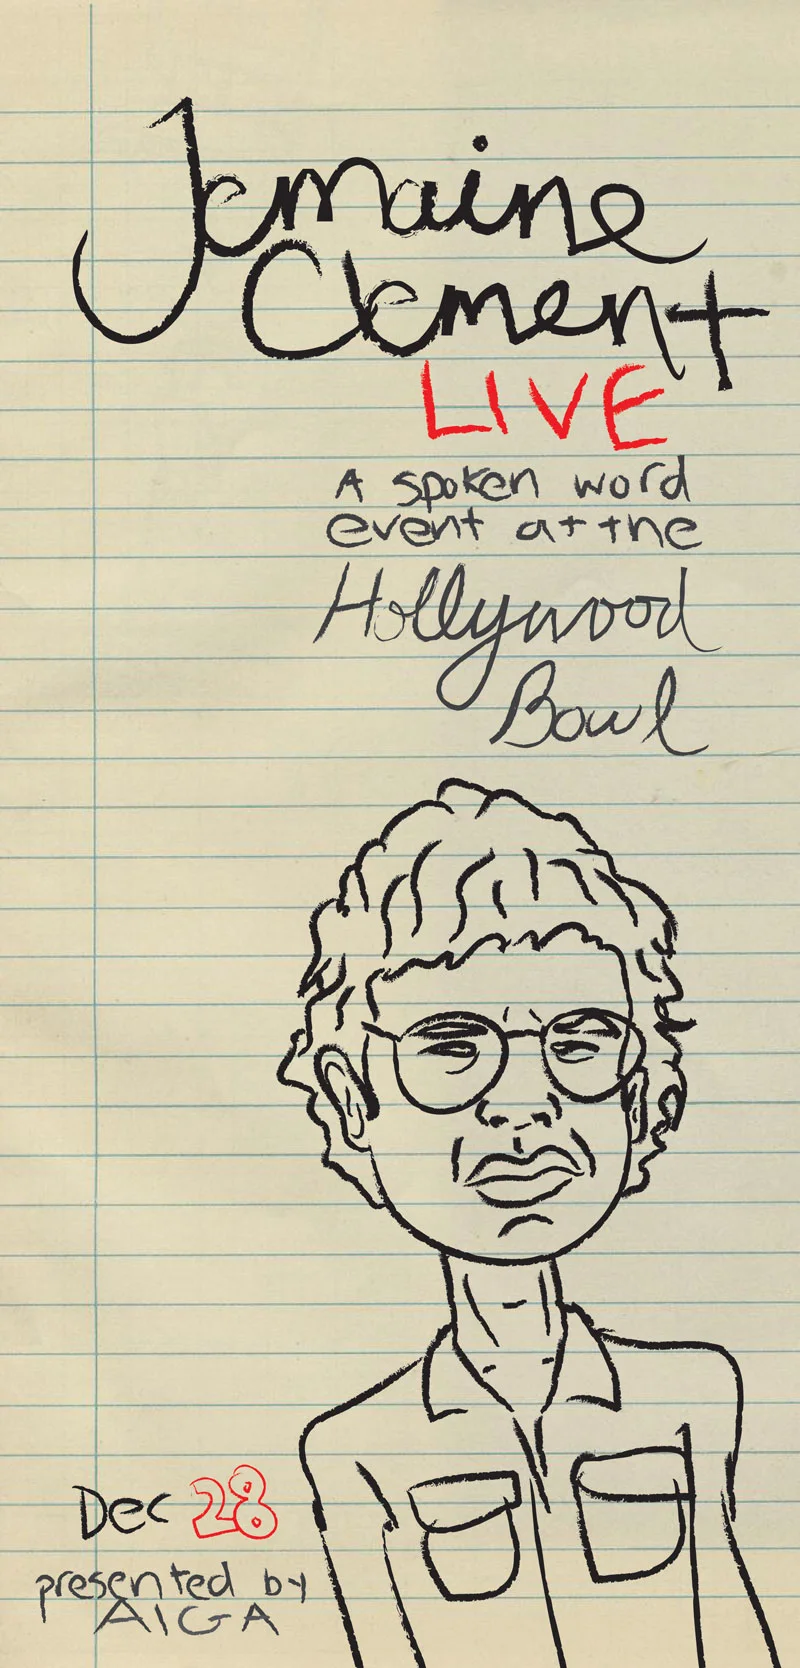 Jemaine
Clement
LIVE
A spoken word
event at the
Hollywood
Bowl
Dec 28
presented by
AIGA